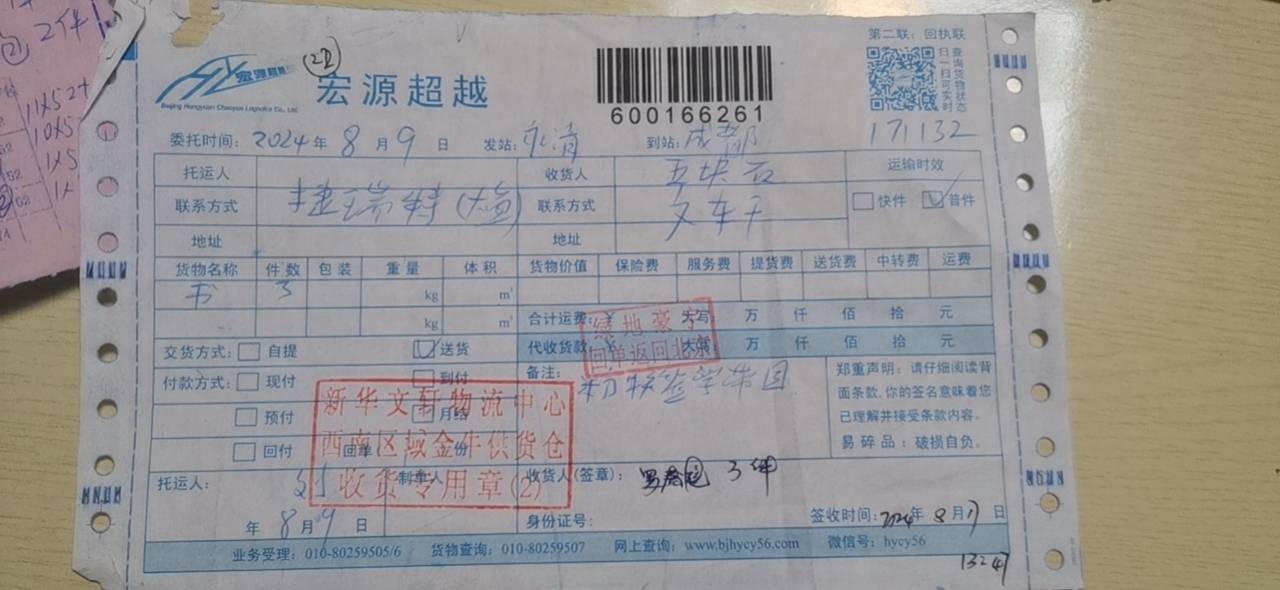 2件
第二联：回执联
宏源超越
Beijing Hongyuan Chaoyue Logistics Co., Ltd.
宏源超越
600166261
扫一扫 查询货物实时状态
171132
委托时间: 2024 年 8 月 9 日 发站: 永清 到站: 成都
托运人 收货人 五块石 运输时效
联系方式 捷瑞特 联系方式 叉车干 快件 普件
地址 地址
货物名称 件数 包装 重量 体积 货物价值 保险费 服务费 提货费 送货费 中转费 运费
书 3 kg m³
kg m³
合计运费: ¥ 大写: 万 仟 佰 拾 元
绿地豪宇
回单返回北京
交货方式: 自提 送货 代收货款: 大写: 万 仟 佰 拾 元
付款方式: 现付 到付
预付 月结
回付 回单 份
备注:
初联签字带回
郑重声明：请仔细阅读背
面条款，你的签名意味着您
已理解并接受条款内容。
易碎品：破损自负。
新华文轩物流中心
西南区域金牛供货仓
收货专用章(2)
托运人: 制单人 收货人(签章): 3件
年 8 月 9 日 身份证号: 签收时间: 2024年 8月17日
业务受理: 010-80259505/6 货物查询: 010-80259507 网上查询: www.bjhycy56.com 微信号: hycy56
1324